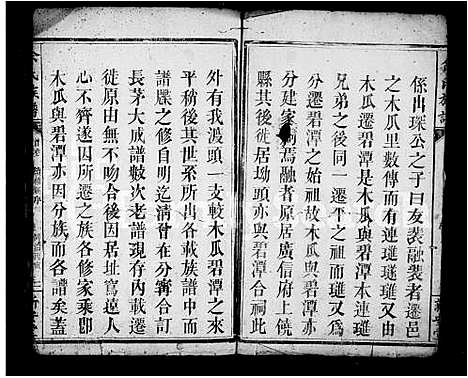 係出琛公之子曰友裝融裝者遷邑
之木瓜里數傳而有連璡璡璲者遷
木瓜遷碧潭是木瓜與碧潭本連璡
兄弟之後而同一遷平之祖而璡又為
分遷碧潭之始祖故木瓜與碧潭亦
分建家祠焉融者原居廣信府上饒
縣其後徙居坳頭亦與碧潭合祠此
外有我渡頭一支較木瓜碧潭之來
平稍後其世系所出各載族譜中而
譜牒之修自明迄清曾在分寧合訂
長茅大成譜數次老譜現存內載遷
徙原由無不吻合因居址寫遠人
心不齊遂因所遷之族各修家乘即
木瓜與碧潭亦因分族而異矣蓋